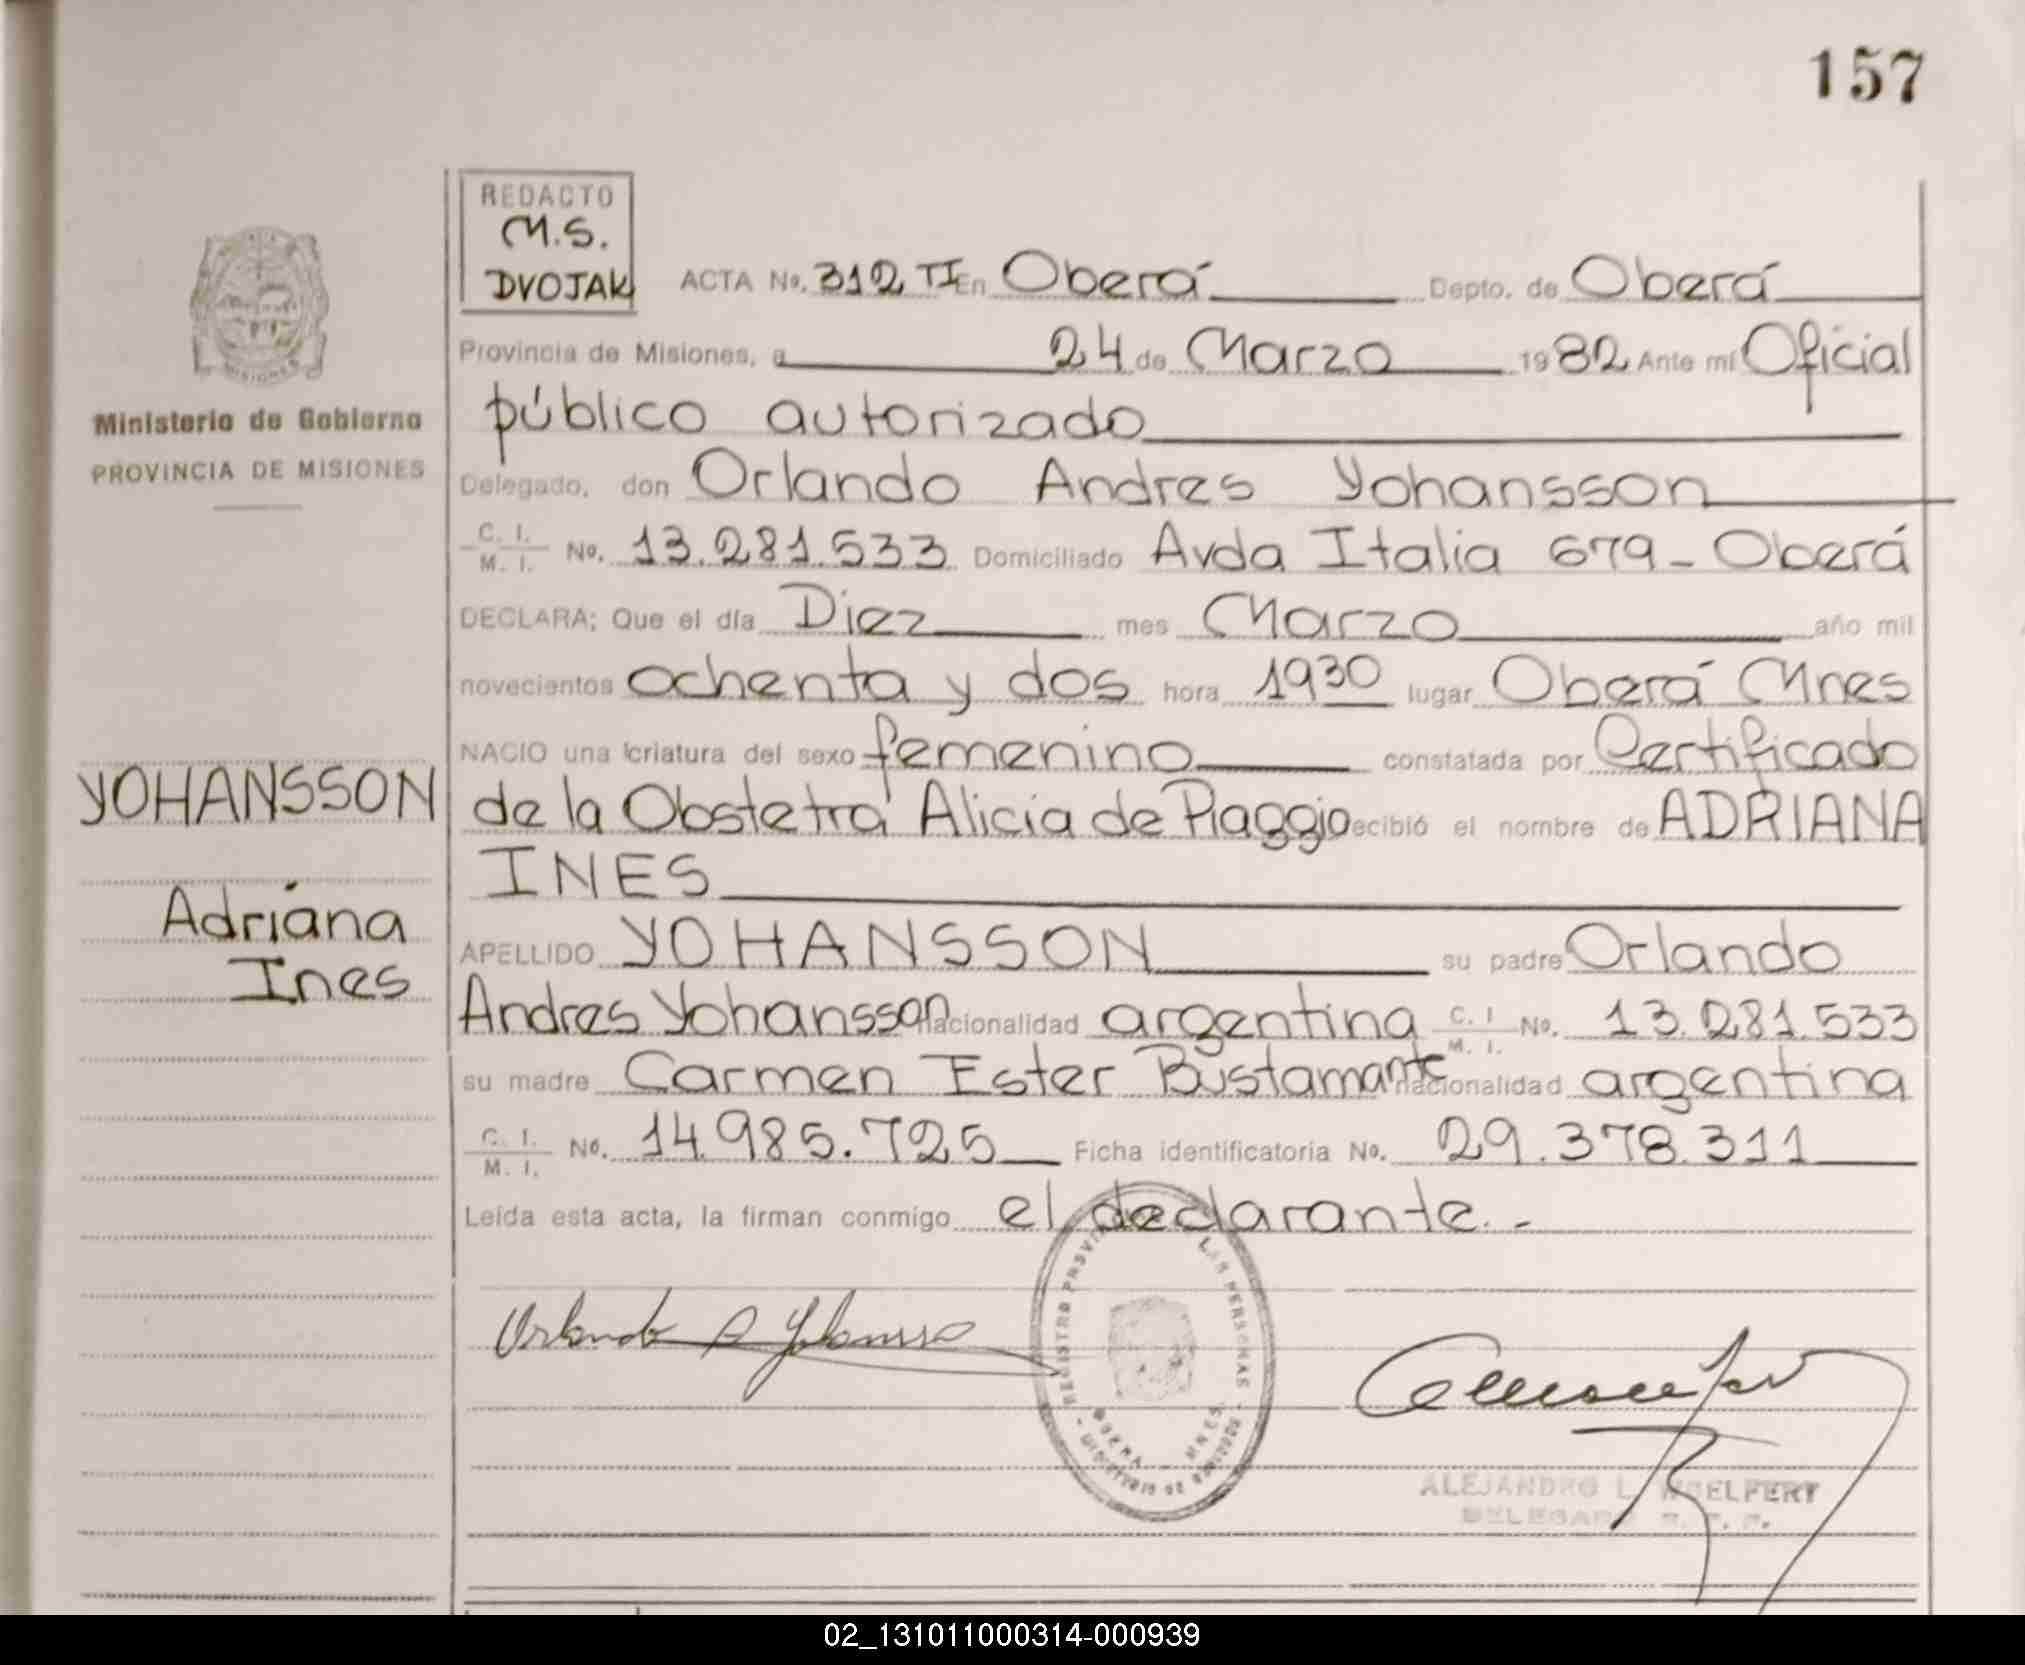 157
REDACTO
M.S.
DVOJAK
ACTA No. 312 TI En Oberá Depto. de Oberá
Provincia de Misiones, a 24 de Marzo 1982 Ante mí Oficial
público autorizado
Delegado, don Orlando Andres Yohansson
C. I. / M. I. No. 13.281.533 Domiciliado Avda Italia 679 - Oberá
DECLARA; Que el día Diez mes Marzo año mil
novecientos ochenta y dos hora 1930 lugar Oberá Mnes
NACIO una criatura del sexo femenino constatada por Certificado
de la Obstetra Alicia de Piaggio recibió el nombre de ADRIANA
INES
APELLIDO YOHANSSON su padre Orlando
Andres Yohansson nacionalidad argentina C. I / M. I. No. 13.281.533
su madre Carmen Ester Bustamante nacionalidad argentina
C. I. / M. I. No. 14.985.725 Ficha identificatoria No. 29.378.311
Leída esta acta, la firman conmigo el declarante. -
MISIONES
Ministerio de Gobierno
PROVINCIA DE MISIONES
YOHANSSON
Adriana
Ines
Orlando A Yohansson
REGISTRO LAS PERSONAS
OBERA - MNES.
MINISTERIO DE GOBIERNO
ALEJANDRO L. WOELFERT
DELEGADO R. P. P.
02_131011000314-000939